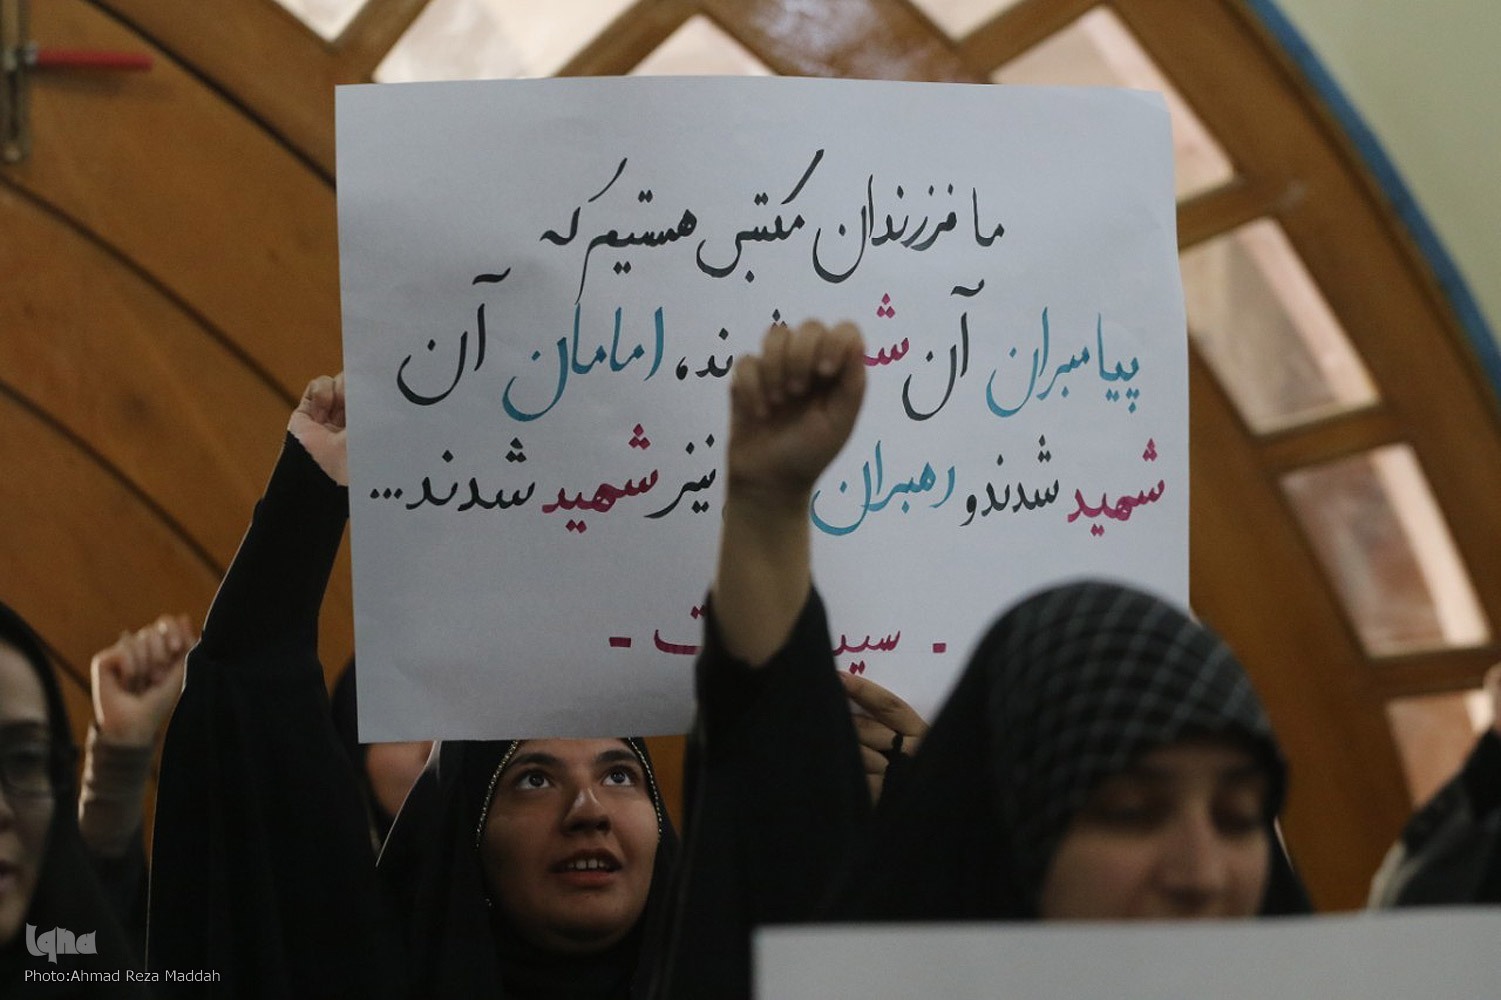 ما فرزندان مکتبی هستیم که
پیامبران آن امامان آن
شهید شدند و رهبران نیز شهید شدند...
Iqna
Photo:Ahmad Reza Maddah